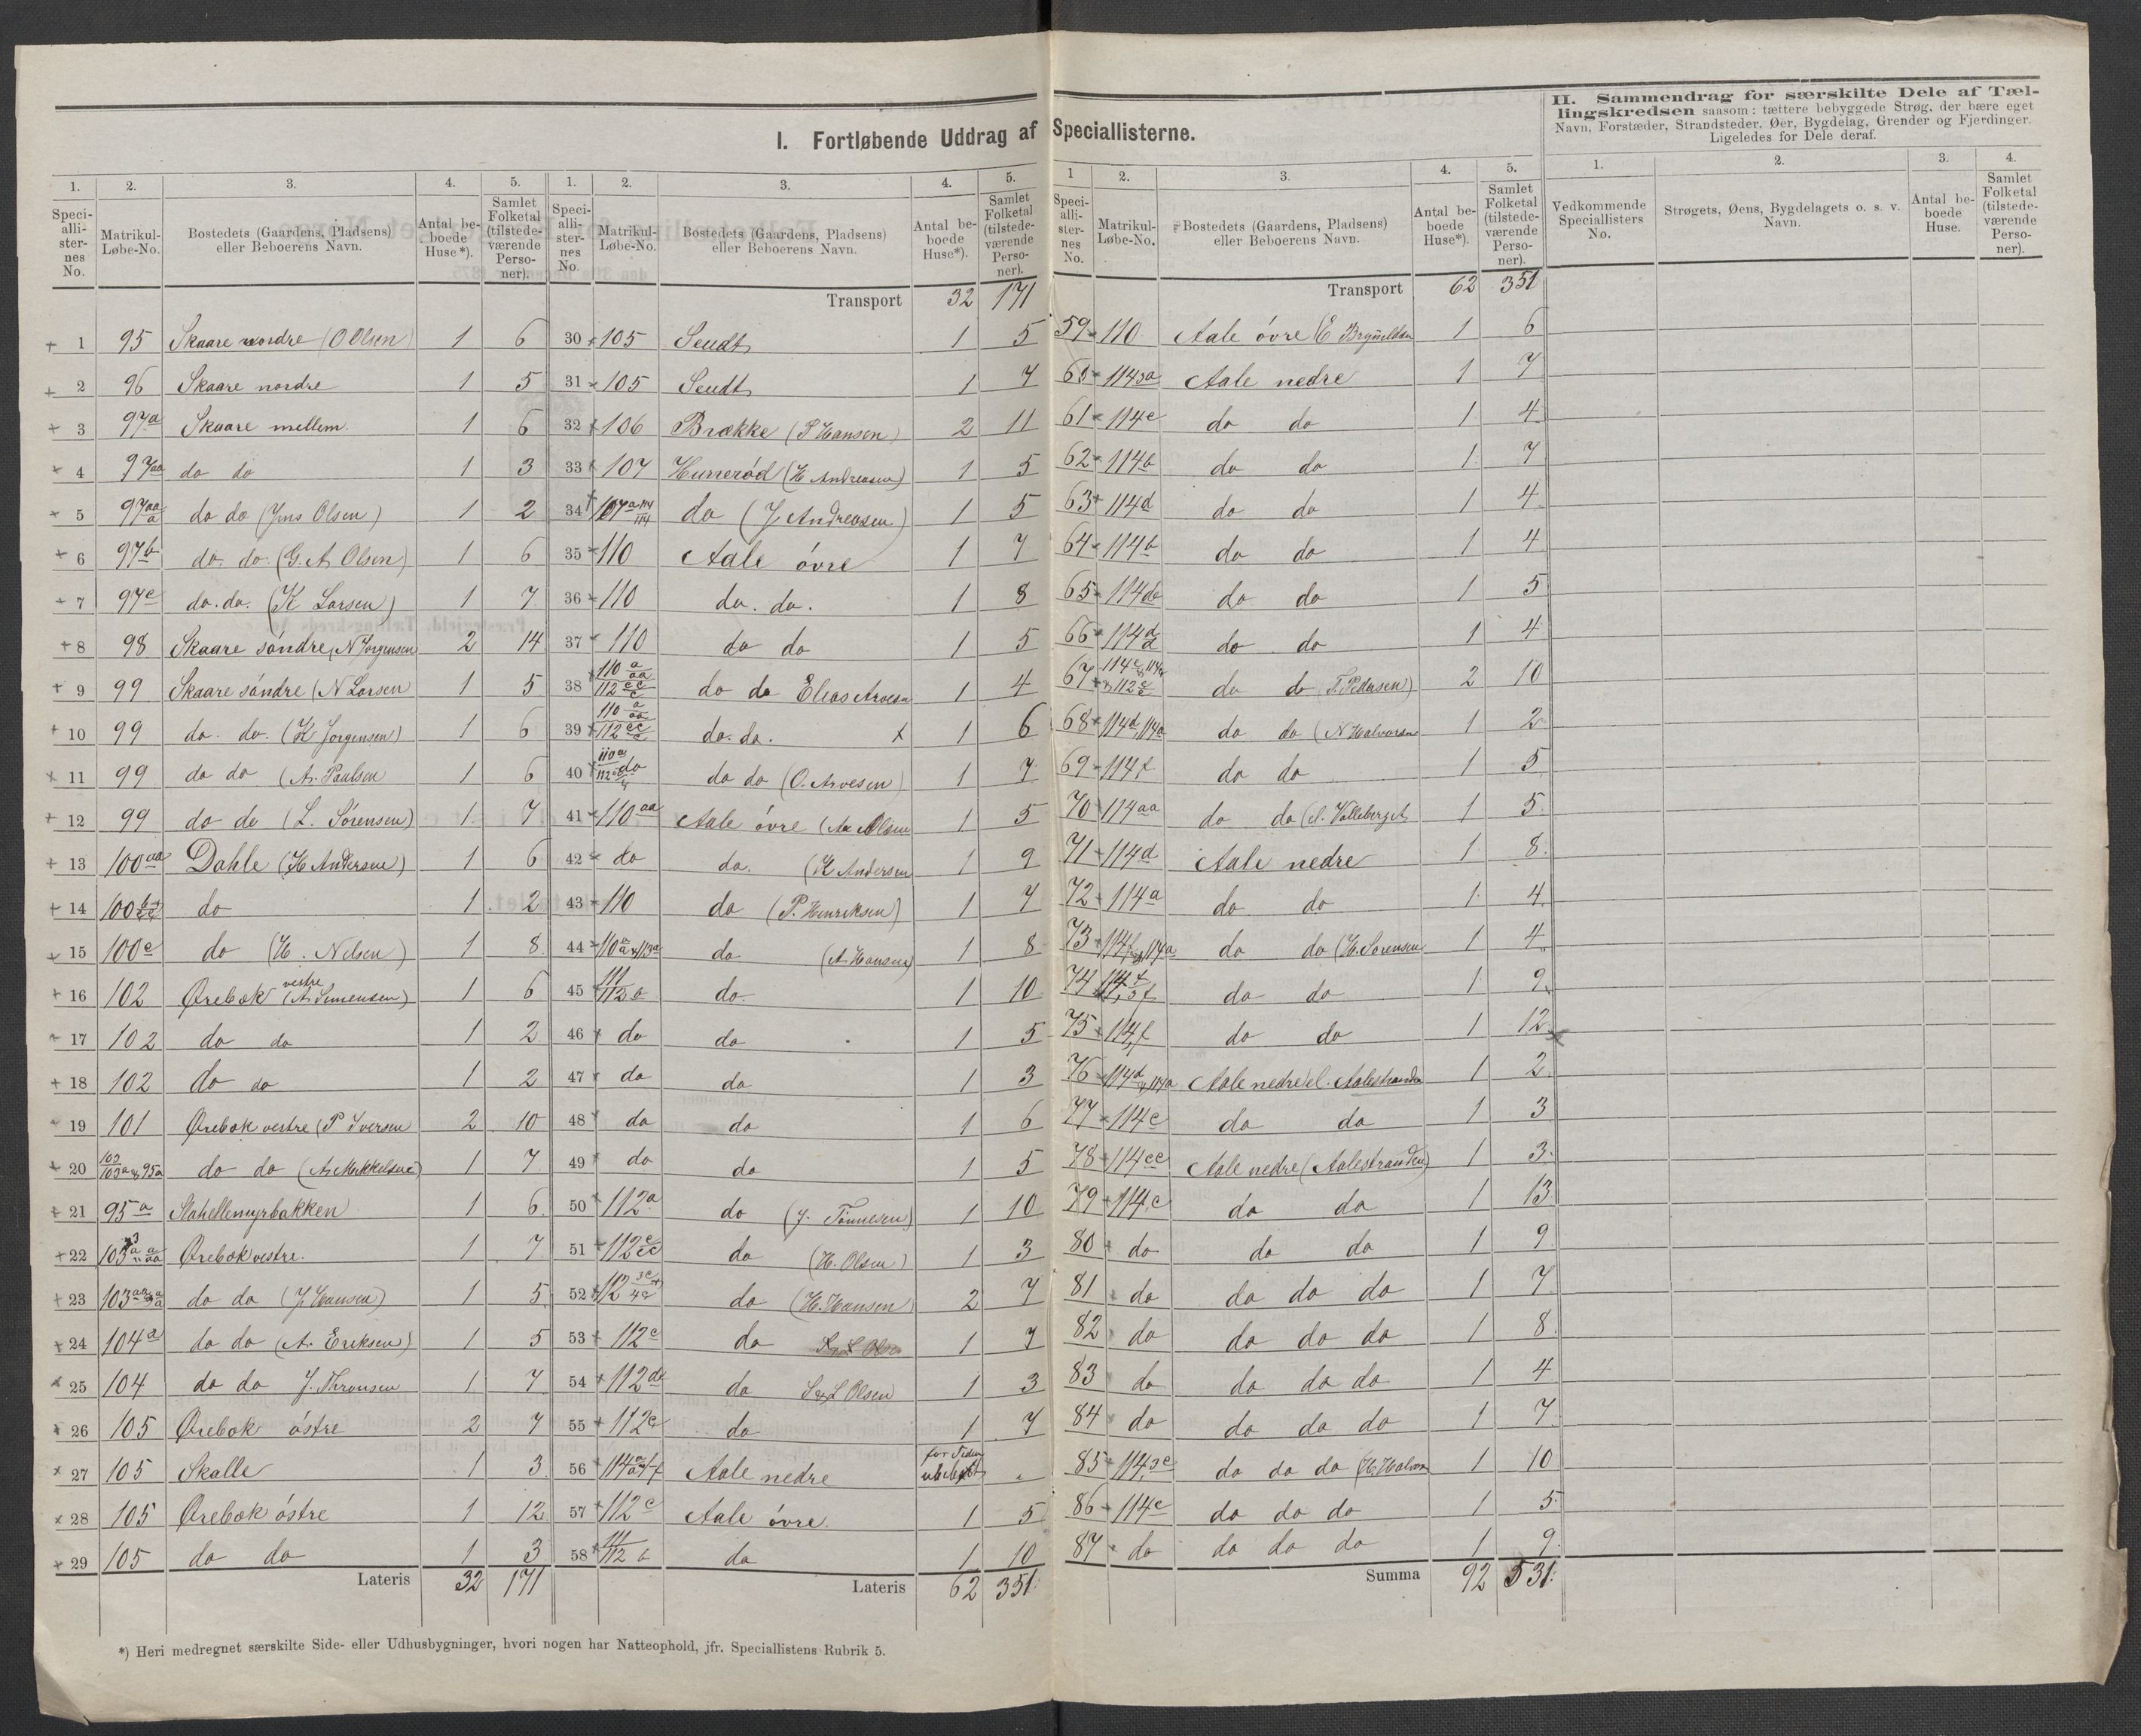 I. Fortløbende Uddrag af Speciallisterne.
II. Sammendrag for særskilte Dele af Tæl-
lingskredsen saasom: tættere bebyggede Strøg, der bære eget
Navn, Forstæder, Strandsteder, Øer, Bygdelag, Grender og Fjerdinger.
Ligeledes for Dele deraf.
1. 2. 3. 4. 5.
Speci-alli-ster-nes No. Matrikul-Løbe-No. Bostedets (Gaardens, Pladsens) eller Beboerens Navn. Antal be-boede Huse*). Samlet Folketal (tilstede-værende Perso-ner).
1 95 Skaare nordre (O Olsen) 1 6
2 96 Skaare nordre 1 5
3 97a Skaare mellem 1 6
4 97aa do do 1 3
5 97aa/a do do (Jens Olsen) 1 2
6 97b do. do. (G. A. Olsen) 1 6
7 97c do. do. (K Larsen) 1 7
8 98 Skaare söndre (N Jorgensen 2 14
9 99 Skaare söndre (N Larsen 1 5
10 99 do. do. (K Jorgensen) 1 6
11 99 do do (A. Paulsen 1 6
12 99 do do (L. Sörensen) 1 7
13 100aa Dahle (H Andersen) 1 6
14 100 do 1 2
15 100c do (H. Nilsen) 1 8
16 102 Ørebæk vestre (A. Simensen) 1 6
17 102 do do 1 2
18 102 do do 1 2
19 101 Ørebæk vestre (P Iversen 2 10
20 103/103a & 95a do do (A. Mikkelsen) 1 7
21 95a Stahellemyrbakken 1 6
22 103 Ørebæk vestre. 1 7
23 103aa do do (J. Hansen) 1 5
24 104a do do (A. Eriksen) 1 5
25 104 do do J. Thronsen 1 7
26 105 Ørebæk östre 2 7
27 105 Skalle 1 3
28 105 Ørebæk östre 1 12
29 105 do do 1 3
Lateris 32 171
1. 2. 3. 4. 5.
Speci-alli-ster-nes No. Matrikul-Løbe-No. Bostedets (Gaardens, Pladsens) eller Beboerens Navn. Antal be-boede Huse*). Samlet Folketal (tilstede-værende Perso-ner).
Transport 32 171
30 105 Seudt 1 5
31 105 Seudt 1 7
32 106 Brække (P Hansen) 2 11
33 107 Hunerød (H Andreasen) 1 5
34 107a do (J. Andreasen) 1 5
35 110 Aale övre 1 7
36 110 do. do. 1 8
37 110 do do 1 5
38 110 a/aa 112 cc/c do do Elias Arvesn 1 4
39 110 a/aa 112 cc/c do. do. x 1 6
40 110a 112 do do do (O. Arvesen) 1 7
41 110aa Aale övre (A Olsen 1 5
42 do do. (K Andersen 1 9
43 110 do (P. Henriksen) 1 7
44 110a & 113a do (A. Hansen) 1 8
45 111/112b do. 1 10
46 do do 1 5
47 do do 1 3
48 do do 1 6
49 do do 1 5
50 112a do (J. Tönnesen) 1 10
51 112c/cc do (H. Olsen) 1 3
52 112 3c/4c do (H. Hansen) 2 7
53 112c do 1 7
54 112 do S & L Olsen 1 3
55 112c do 1 7
56 114 Aale nedre for Tiden ubeboet "
57 112c Aale övre. 1 5
58 111/112 b do 1 10
Lateris 62 351
1 2. 3. 4. 5.
Speci-alli-ster-nes No. Matrikul-Løbe-No. Bostedets (Gaardens, Pladsens) eller Beboerens Navn. Antal be-boede Huse*). Samlet Folketal (tilstede-værende Perso-ner).
Transport 62 351
59 110 Aale övre (E Brynildsen 1 6
60 114 3a Aale nedre 1 7
61 114c do do 1 4
62 114b do do 1 7
63 114d do do 1 4
64 114b do do 1 4
65 114 do do 1 5
66 114d/d do do 1 4
67 114c do do (T. Pedersen) 2 10
68 114d, 114a do do (N Halvorsen 1 2
69 114f do do 1 5
70 114aa do do (A. Valleberget 1 5
71 114d Aale nedre 1 8
72 114a do do 1 4
73 114f & 114a do do (H. Sörensen 1 4
74 114 do do 1 9
75 114f do do 1 12
76 114d & 114a Aale nedre el. Aalestranden 1 2
77 114c do do 1 3
78 114cc Aale nedre (Aalestranden) 1 3
79 114c do do 1 13
80 do do do 1 9
81 do do do do 1 7
82 do do do do 1 8
83 do do do do 1 4
84 do do do do 1 7
85 114,3c do do do (H. Halvors 1 10
86 114c do do do 1 5
87 do do do do 1 9
Summa 92 531
1. 2. 3. 4.
Vedkommende Speciallisters No. Strøgets, Øens, Bygdelagets o. s. v. Navn. Antal be-boede Huse. Samlet Folketal (tilstede-værende Perso-ner).
*) Heri medregnet særskilte Side- eller Udhusbygninger, hvori nogen har Natteophold, jfr. Speciallistens Rubrik 5.